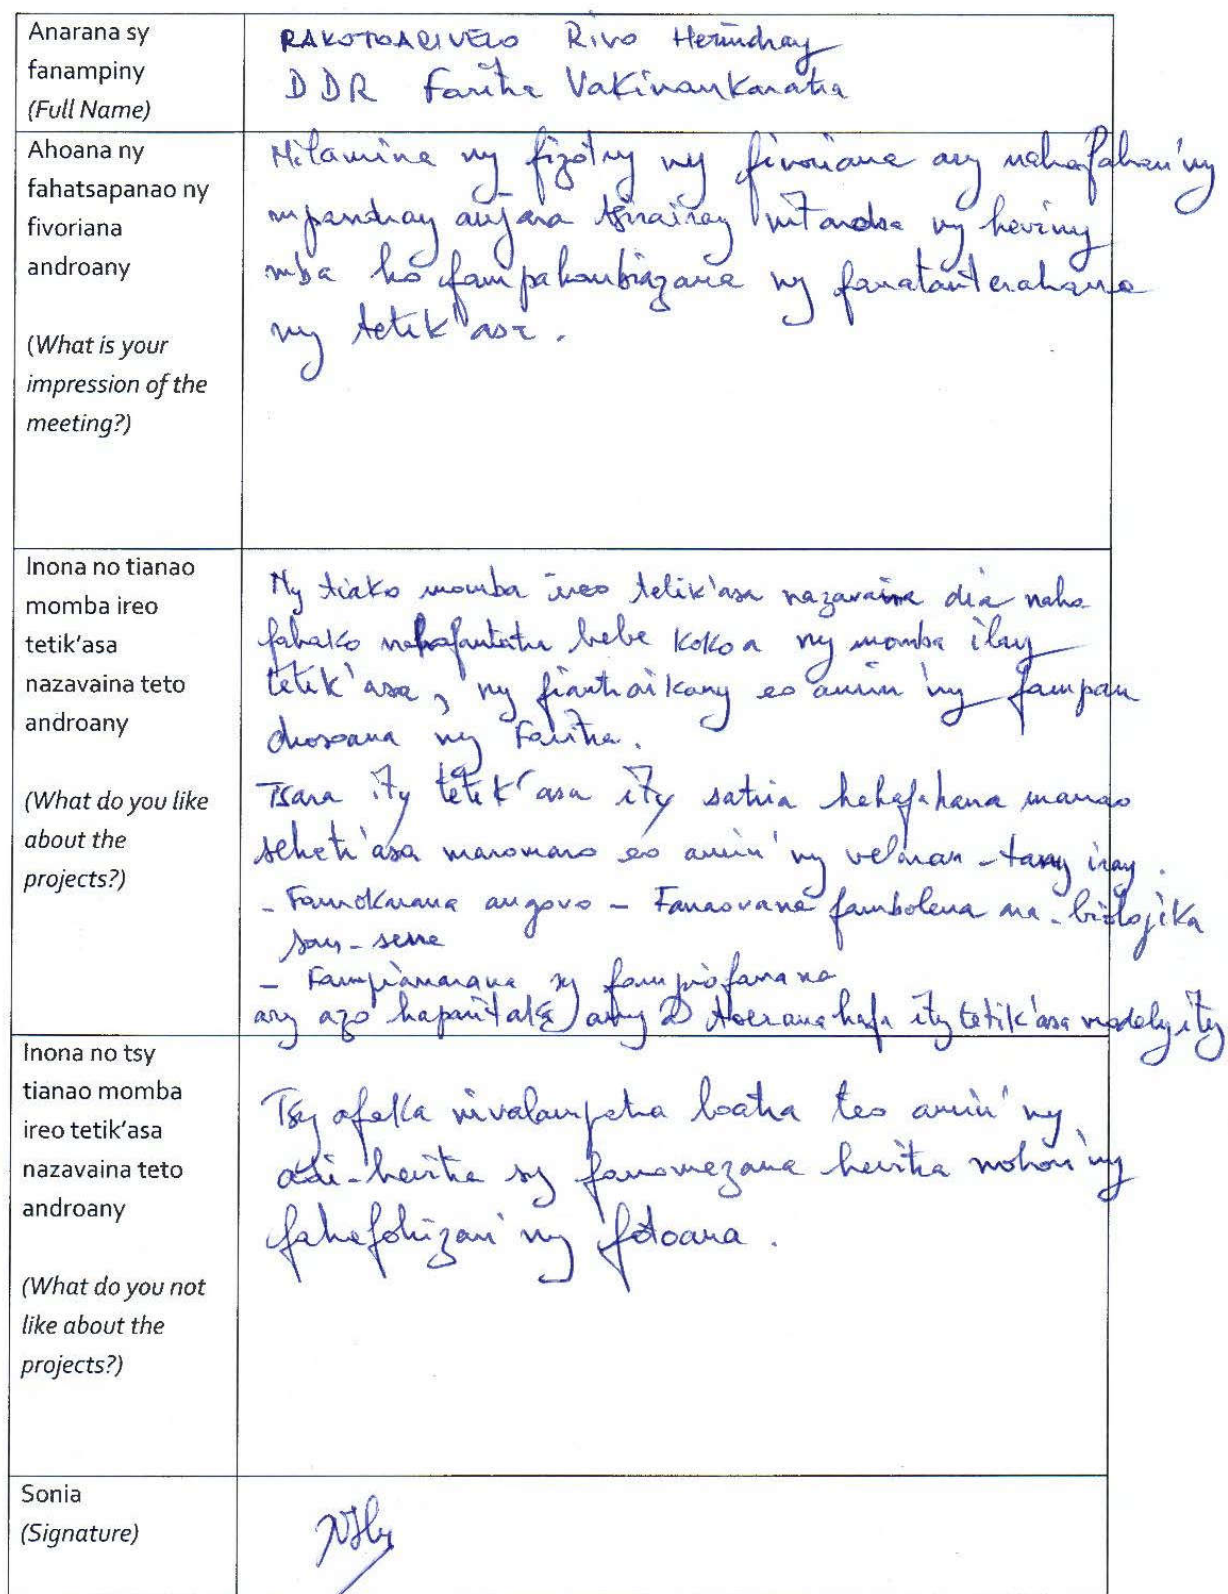 Anarana sy
fanampiny
(Full Name)
RAKOTOARIVELO Rivo Herindray
DDR Faritra Vakinankaratra
Ahoana ny
fahatsapanao ny
fivoriana
androany
(What is your
impression of the
meeting?)
Milamina ny fizotry ny fivoriana ary nahafahan'ny
mpandray anjara tsirairay nitondra ny heviny
mba ho fampahombiazana ny fanatanterahana
ny tetik'asa.
Inona no tianao
momba ireo
tetik'asa
nazavaina teto
androany
(What do you like
about the
projects?)
Ny tiako momba ireo tetik'asa nazavaina dia naha
fahako nahafantatra bebe kokoa ny momba ilay
tetik'asa, ny fiantraikany eo amin'ny fampan
drosoana ny Faritra.
Tsara ity tetik'asa ity satria hahafahana manao
sehatr'asa maromaro eo amin'ny velaran-tany iray.
- Famokarana angovo - Fanaovana fambolena ara-biolojika
sous-serre
- Fampianarana sy fampiofanana
ary azo hapariaka any @ toerana hafa ity tetik'asa modely ity
Inona no tsy
tianao momba
ireo tetik'asa
nazavaina teto
androany
(What do you not
like about the
projects?)
Tsy afaka nivalampatra loatra teo amin'ny
adi-hevitra sy fanomezana hevitra nohon'ny
fahafohizan'ny fotoana.
Sonia
(Signature)